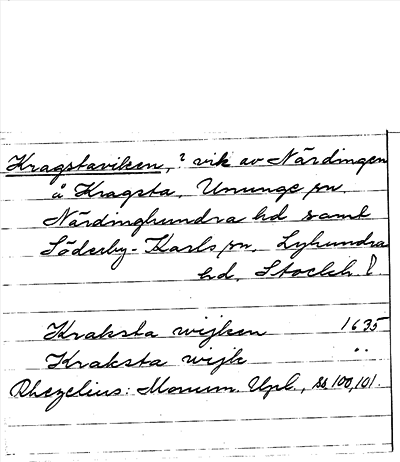 Kragstaviken, ? vik av Närdingen
å Kragsta, Ununge sn
Närdinghundra hd samt
Söderby-Karls sn, Lyhundra
hd, Stockh.
Kraksta wijken 1635
Kraksta wijk ..
Rhezelius: Monum. Upl., ss. 100, 101.